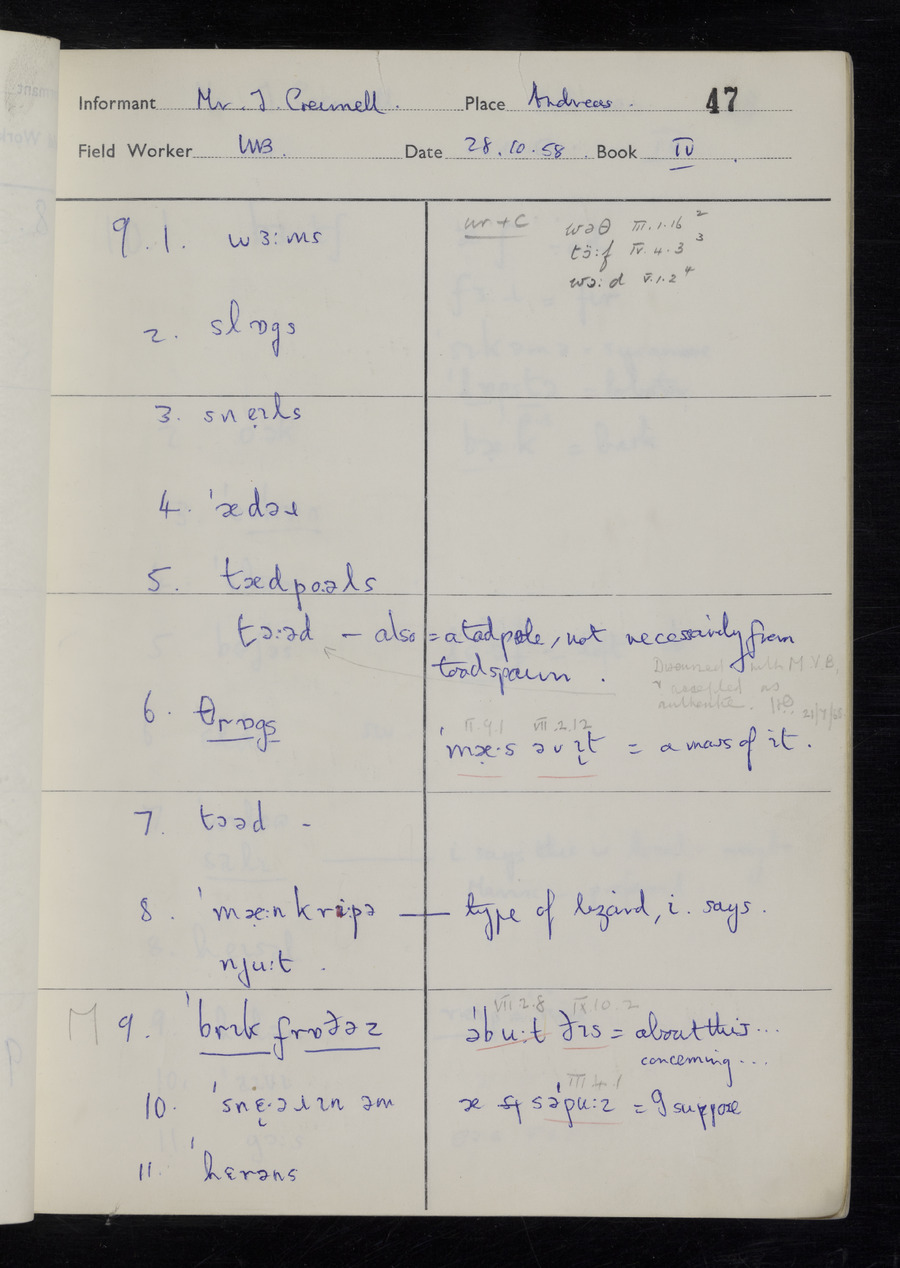 Informant Mr. J. Creunell. Place Andreas. 47
Field Worker WB. Date 28.10.58. Book IV
9.1. wɜ:ms
ur + C
wəθ III.1.16 2
tɜ̈:f IV.4.3 3
wə:d V.1.2 4
2. slɒgs
3. snɛɪls
4. ˈædəɹ
5. tædpo.əls
tɔ:əd – also = a tadpole, not necessarily from
toadspawn.
Discussed with M.V.B.,
& accepted as
authentic. 21/7/65
6. θrɒgs
II.9.1 VII.2.12
ˈmæ·s əv ɪ̣t = a mass of it.
7. tɔəd -
8. ˈmæ:nkri:pə — type of lizard, i. says.
nju:t.
M 9. ˈbrɪk frɒðəz
VII.2.8 IX.10.2
əbu:t ðɪs = about this...
concerning...
10. ˈsnɛ̣·əɹɪn əm
III.4.1
sə̍pu:z = I suppose
11. ˈhɛrəns